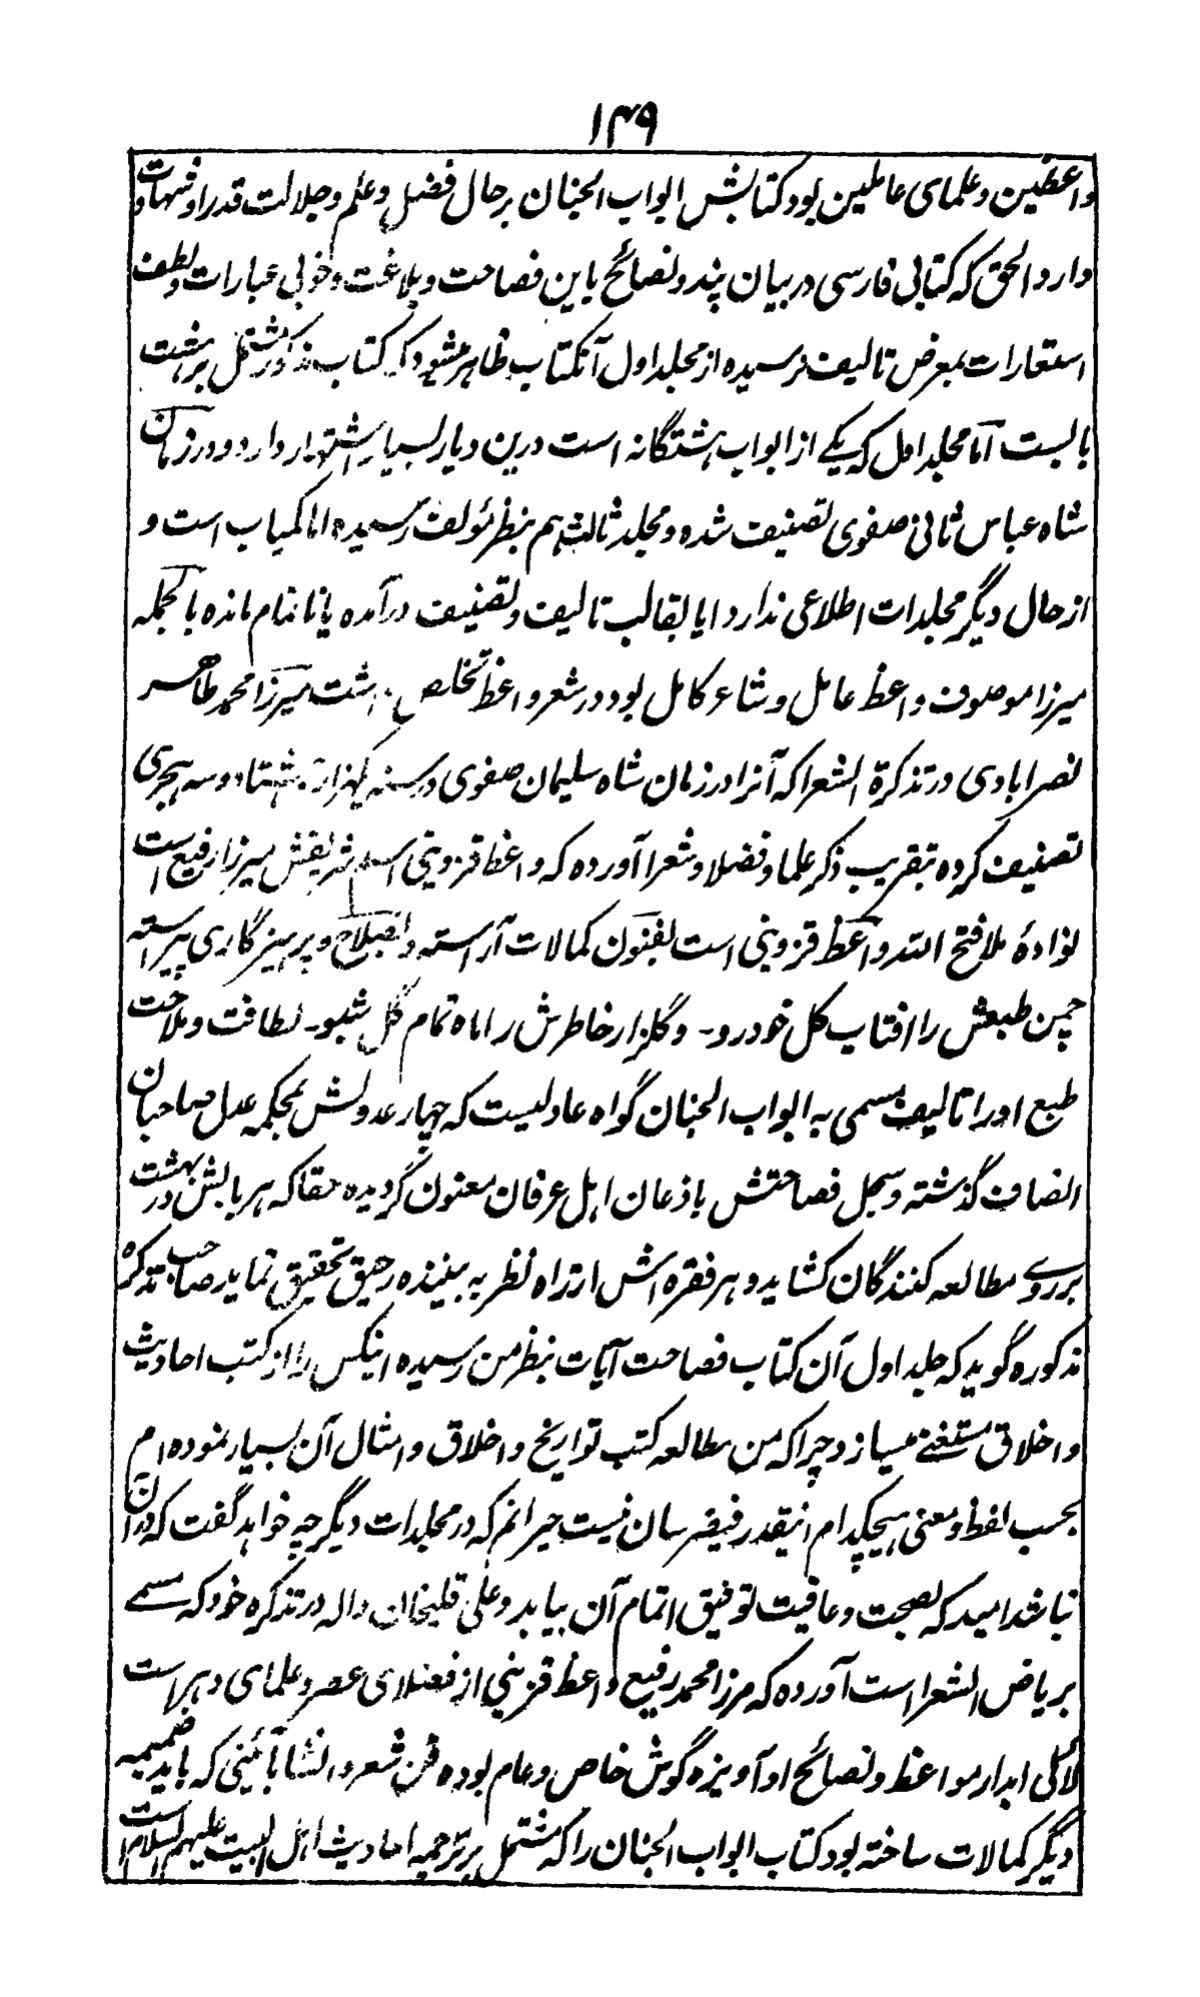 ۱۴۹
واعظین و علمای عاملین بود کتابش ابواب الجنان بر حال فضل و علم و جلالت قدر او شهادت
دارد الحق که کتابی فارسی در بیان پند و نصائح باین فصاحت و بلاغت و خوبی عبارات و لطف
استعارات بمعرض تالیف نرسیده از مجلد اول آنکتاب ظاهر میشود که کتاب مذکور مشتمل بر هشت
بابست اما مجلد اول که یکے از ابواب هشتگانه است درین دیار بسیار اشتهار دارد و در زمان
شاه عباس ثانی صفوی تصنیف شده و مجلد ثالث هم بنظر مؤلف رسیده اما کمیاب است و
از حال دیگر مجلدات اطلاعی ندارد ایا بقالب تالیف و تصنیف درآمده یا ناتمام مانده بالجمله
میرزا موصوف واعظ عامل و شاعر کامل بود در شعر واعظ تخلص داشت میرزا محمد طاهر
نصرابادی در تذکرة الشعرا که آنرا در زمان شاه سلیمان صفوی در سنه یکهزار و هشتاد و سه هجری
تصنیف کرده بتقریب ذکر علما و فضلا و شعرا آورده که واعظ قزوینی اسم شریفش میرزا رفیع است
نوادهٔ ملا فتح الله واعظ قزوینی است بفنون کمالات آراسته و بصلاح و پرهیزگاری پیراسته
چمن طبعش را افتاب گل خودرو ـ و گلزار خاطرش را ماه تمام گل شبو ـ لطافت و ملاحت
طبع او را تالیف مسمی به ابواب الجنان گواه عادلیست که چهار عدولش بمحکمه عدل صاحبان
انصاف گذشته و سجل فصاحتش باذعان اهل عرفان معنون گردیده حقا که هر بابش در بهشت
بر روے مطالعه کنندگان کشاید و هر فقره اش از راه نظر به بیننده رحیق تحقیق نماید صاحب تذکره
مذکوره گوید که جلد اول آن کتاب فصاحت آیات بنظر من رسیده اینکس را از کتب احادیث
و اخلاق مستغنے میسازد چرا که من مطالعه کتب تواریخ و اخلاق و امثال آن بسیار نموده ام
بحسب لفظ و معنی هیچکدام اینقدر فیض رسان نیست حیرانم که در مجلدات دیگر چه خواهد گفت که در آن
نباشد امید که بصحت و عافیت توفیق اتمام آن بیابد و علی قلیخان واله در تذکره خود که مسمے
بریاض الشعرا است آورده که مرزا محمد رفیع واعظ قزوینی از فضلای عصر و علمای دهر است
لآلی ابدار مواعظ و نصائح او آویزه گوش خاص و عام بوده فن شعر و انشا بآئینی که باید ضمیمه
دیگر کمالات ساخته بود کتاب ابواب الجنان را که مشتمل بر ترجمه احادیث اهل البیت علیهم السلام است